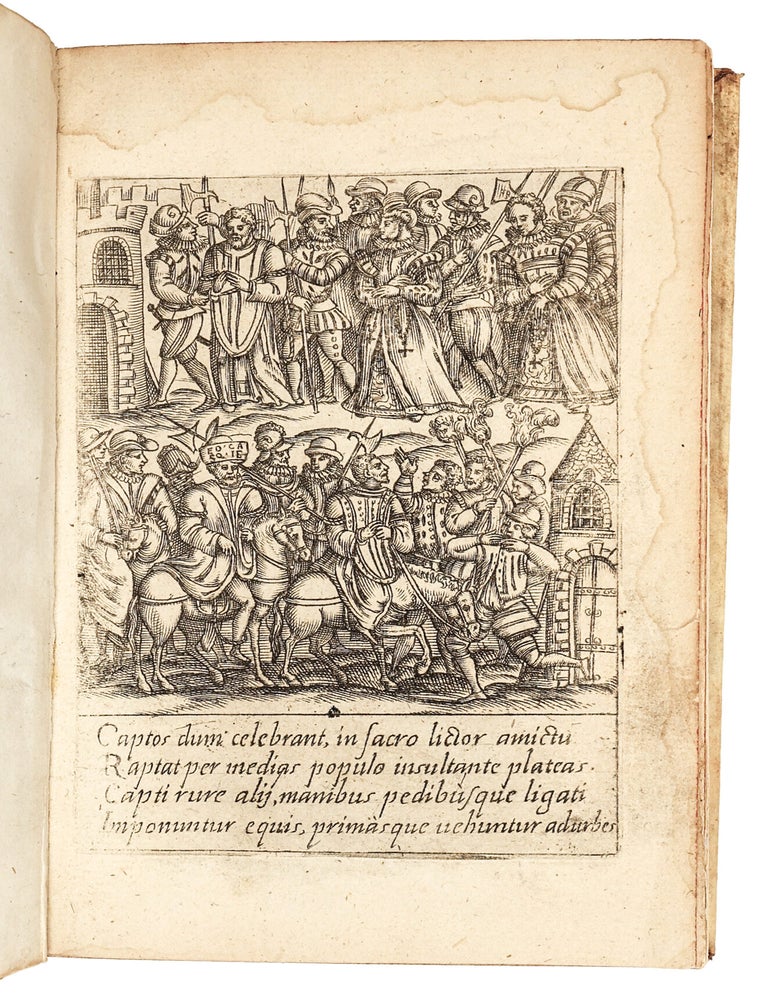 ED·CA
SO·IE
Captos dum celebrant, in sacro lictor amictu
Raptat per medias populo insultante plateas.
Capti rure alij, manibus pedibusque ligati
Imponuntur equis, primasque uehuntur ad urbes